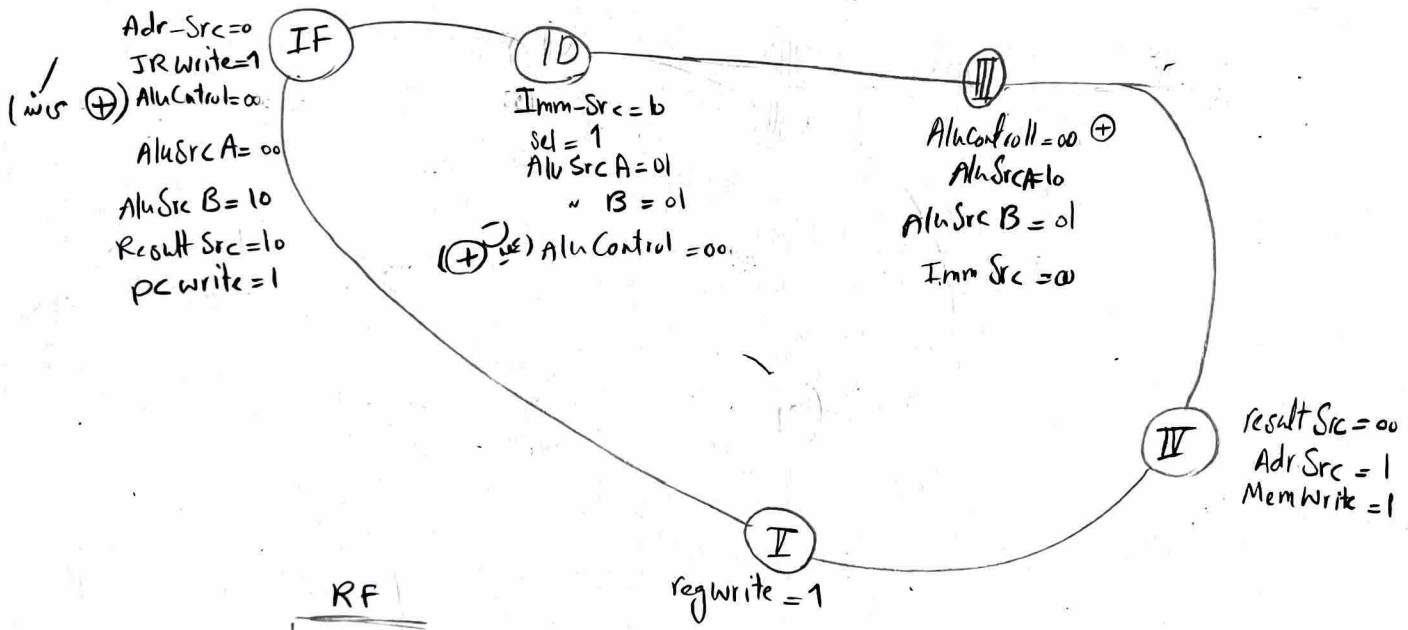 IF
Adr-Src=0
IRWrite=1
(یعنی ⊕) AluControl=00
AluSrc A=00
AluSrc B=10
Result Src=10
PC write=1
ID
Imm-Src=10
sel=1
Alu Src A=01
" B=01
(⊕ یعنی) Alu Control=00
III
AluControll=00 ⊕
AluSrcA=10
AluSrc B=01
Imm Src=00
IV
result Src=00
Adr Src=1
MemWrite=1
V
regwrite=1
RF